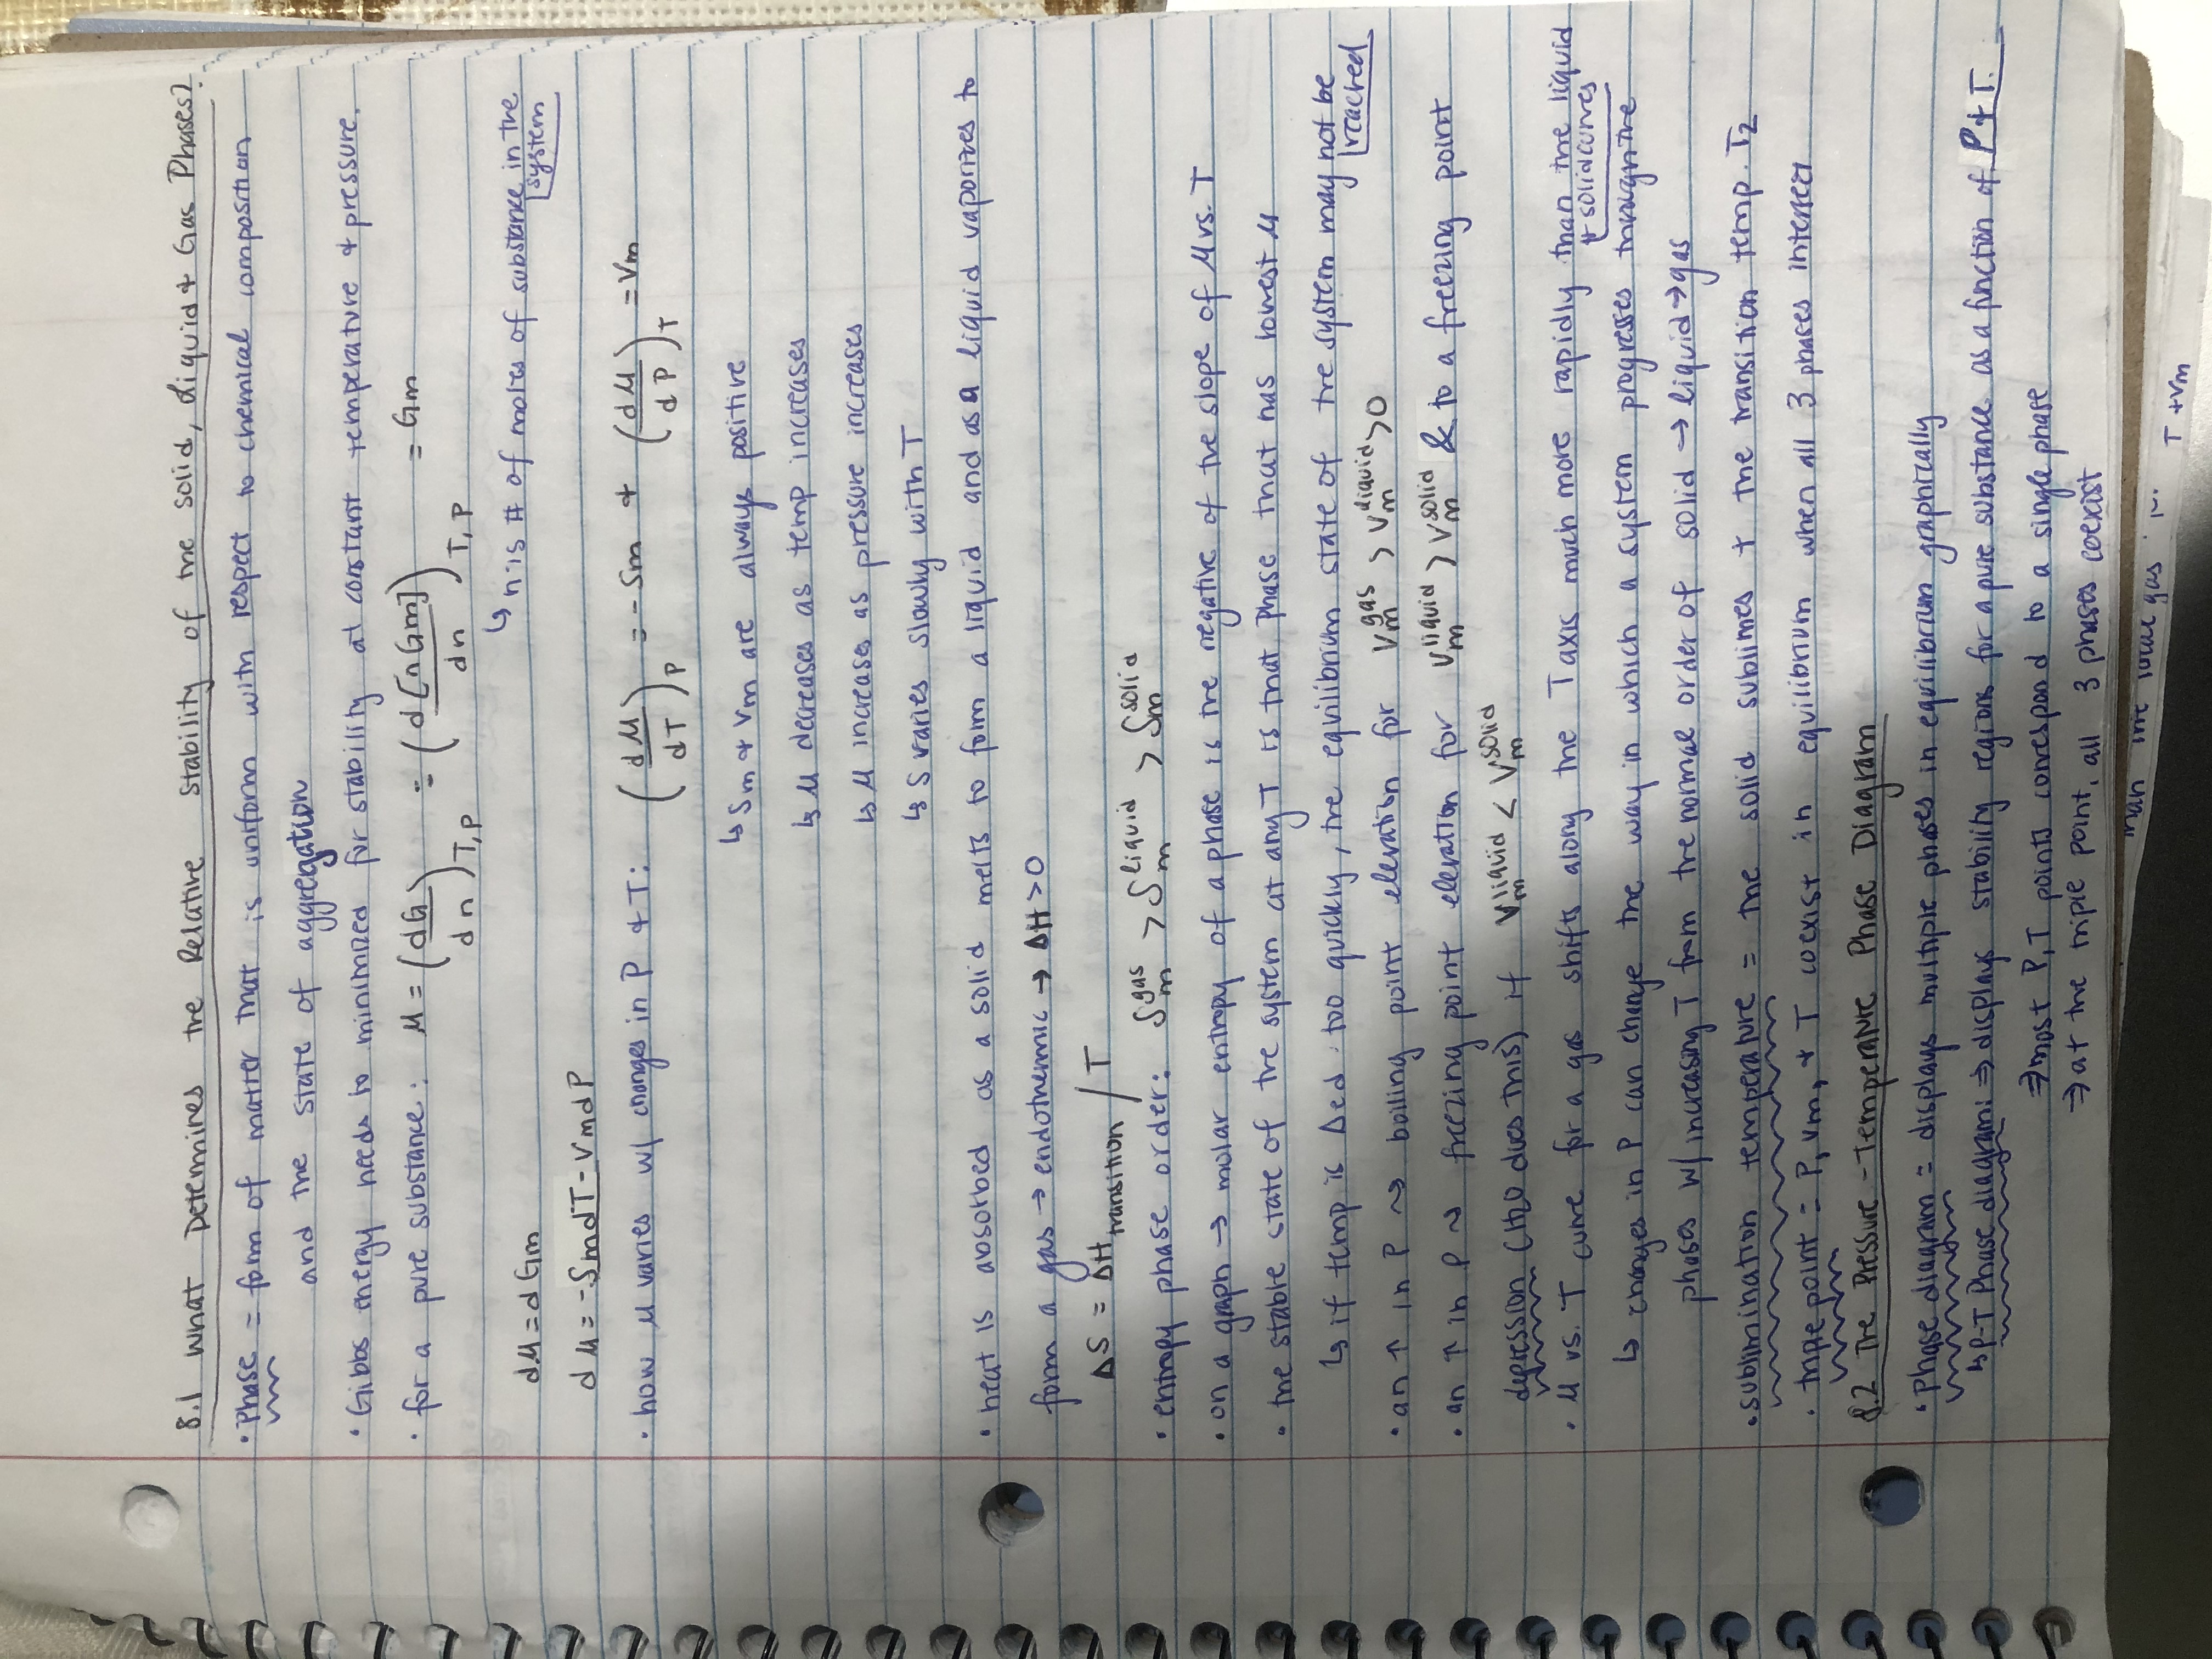 8.1 What Determines the Relative Stability of the Solid, Liquid & Gas Phases?
• Phase = form of matter that is uniform with respect to chemical composition
and the state of aggregation
• Gibbs energy needs to minimized for stability at constant temperature & pressure.
• for a pure substance: μ = (dG/dn)T,P = (d[nGm]/dn)T,P = Gm
↳ n is # of moles of substance in the
system
dμ = dGm
dμ = -SmdT - VmdP
• how μ varies w/ changes in P & T: (dμ/dT)P = -Sm & (dμ/dP)T = Vm
↳ Sm & Vm are always positive
↳ μ decreases as temp increases
↳ μ increases as pressure increases
↳ S varies slowly with T
• heat is absorbed as a solid melts to form a liquid and as a liquid vaporizes to
form a gas → endothermic → ΔH > 0
ΔS = ΔH transition / T
• entropy phase order: Sm^gas > Sm^liquid > Sm^solid
• on a graph → molar entropy of a phase is the negative of the slope of μ vs. T
• the stable state of the system at any T is that phase that has lowest μ
↳ if temp is Δed too quickly, the equilibrium state of the system may not be
reached
• an ↑ in P ⇝ boiling point elevation for Vm^gas > Vm^liquid > 0
• an ↑ in P ⇝ freezing point elevation for Vm^liquid > Vm^solid & to a freezing point
depression (H2O does this) if Vm^liquid < Vm^solid
• μ vs. T curve for a gas shifts along the T axis much more rapidly than the liquid
& solid curves
↳ changes in P can change the way in which a system progresses through the
phases w/ increasing T from the normal order of solid → liquid → gas
• sublimination temperature = the solid sublimes + the transition temp. T2
• triple point = P, Vm, & T coexist in equilibrium when all 3 phases intersect
8.2 The Pressure-Temperature Phase Diagram
• Phase diagram = displays multiple phases in equilibrium graphically
↳ P-T Phase diagram: ⇒ displays stability regions for a pure substance as a function of P & T.
⇒ most P,T points correspond to a single phase
⇒ at the triple point, all 3 phases coexist
than the gas
T + Vm